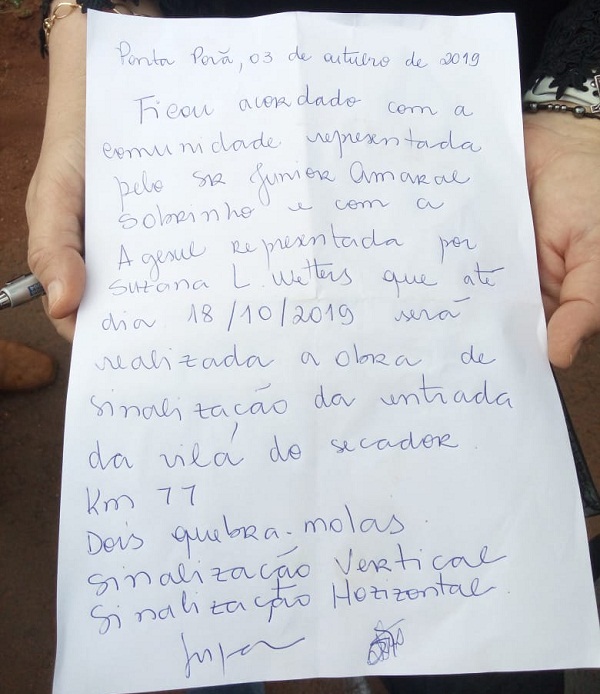 Ponta Porã, 03 de outubro de 2019
Ficou acordado com a
comunidade representada
pelo SR Junior Amaral
Sobrinho e com a
Agesul Representada por
Suzana L. Wetters que até
dia 18/10/2019 será
realizada a obra de
sinalização da entrada
da vila do secador.
Km 77
Dois quebra-molas.
Sinalização Vertical
Sinalização Hozizontal.